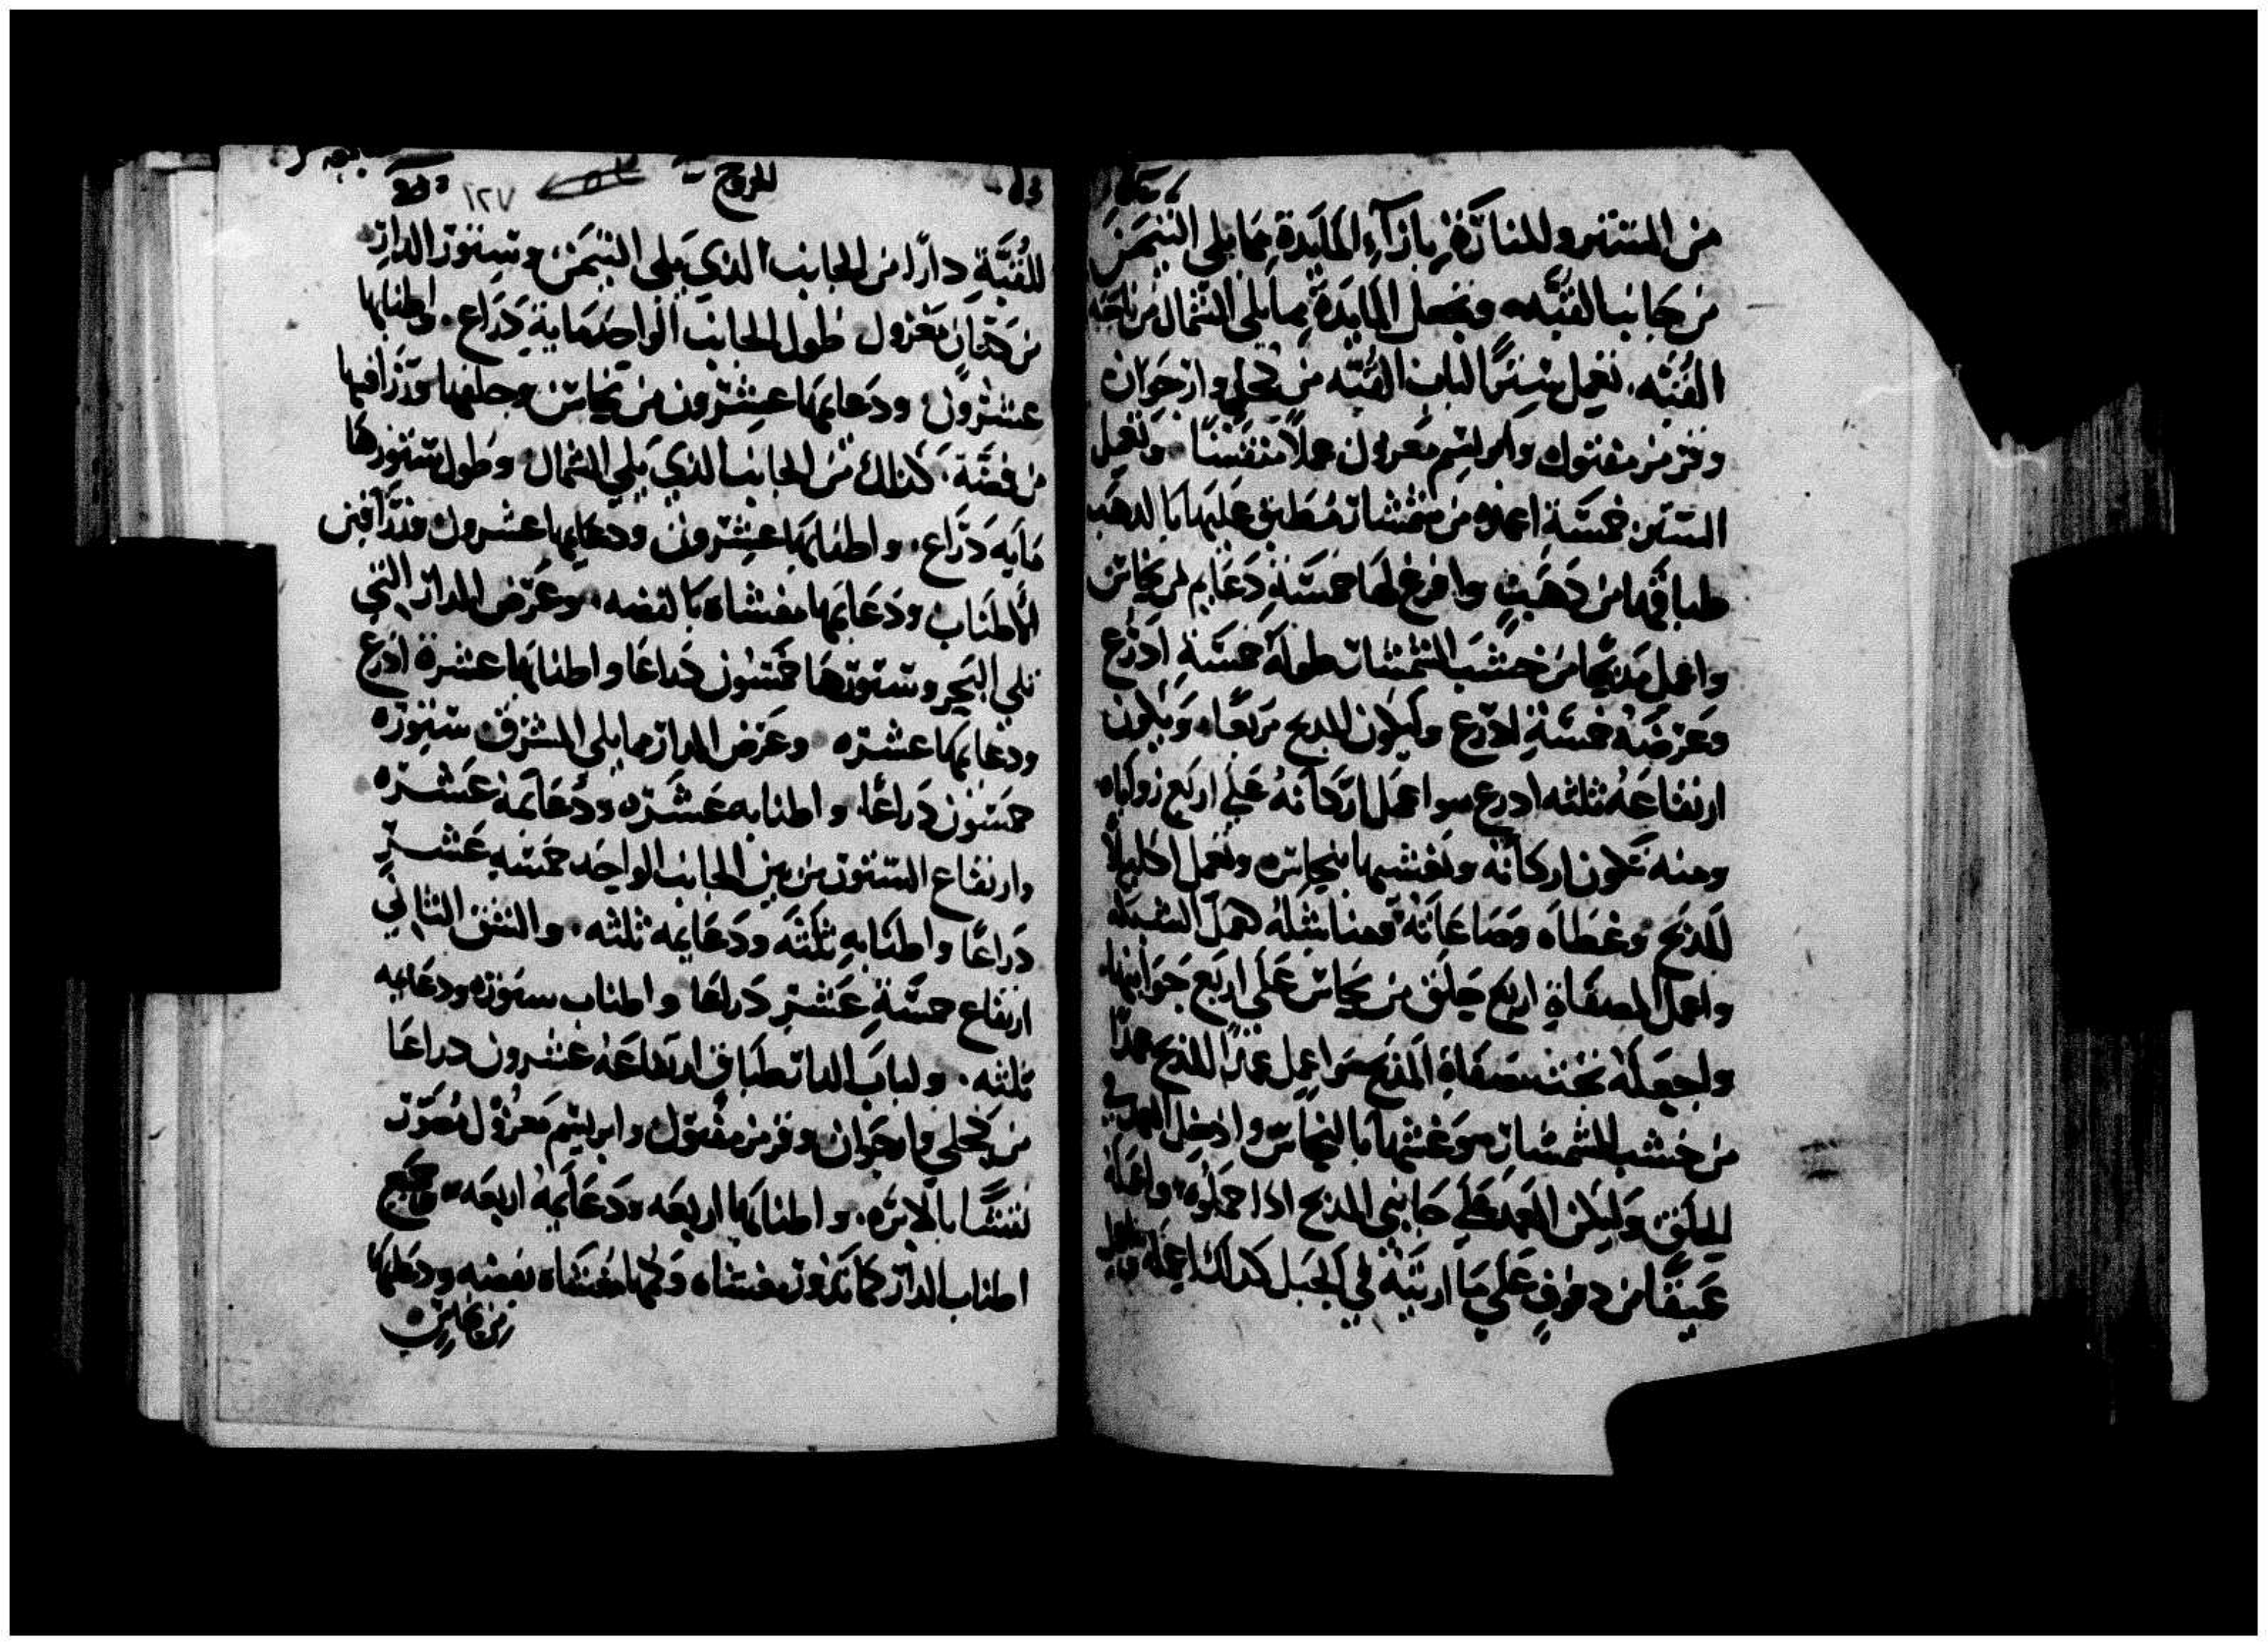 من الستر والمنارة بازآء المايدة مما يلي التيمن
من جانب القبه وتجعل المايدة مما يلي الشمال من ناحيه
القبه. تعمل سترًا لباب القبه من كحلي وارجوان
وقرمز مفتول وابريسم معزول عملاً منقشًا وتعمل
الستر خمسة اعمده من شمشار مُطبق عليها بالدهب
طباقها من دهبٍ وافرغ لها خمسة دعايم من نحاس
واعمل مدبحًا من خشب الشمشار طوله خمسة ادرع
وعرضه خمسة ادرع وليكون المدبح مربعًا. ويكون
ارتفاعه ثلثه ادرع سوا اعمل اركانه على اربع زواياه
ومنه تكون اركانه وتغشيها بنحاس وتعمل اكليلاً
للمدبح وغطاه
واعمل المصفاة اربع حلق من نحاس على اربع جوانبها
واجعله تحت مصفاة المدبح اعمل عمدًا للمدبح عمدًا
من خشب الشمشار وغشيها بالنحاس وادخل العمد في
الحلق وليكن العمد على جانبي المدبح ادا حملوه واعمله
على ما اريته في الجبل كدلك اعمله
الخروج ١٢٧
للقبة دارًا من الجانب الدي يلي التيمن وستور الدار
من كتان معزول طول الجانب الواحد ماية دراع. واطنابها
عشرون ودعايمها عشرون من نحاس وحلقها وزرافيها
من فضة. كدلك من الجانب الدي يلي الشمال وطول ستورها
مايه دراع. واطنابها عشرون ودعايمها عشرون وزرافين
الاطناب ودعايمها مغشاه بالفضه. وعرض الدار التي
تلي البحر وستورها خمسون دراعا واطنابها عشرة ادرع
ودعايمها عشره وعرض الدار مما يلي المشرق ستوره
خمسون دراعًا. واطنابه عشره ودعايمه عشره
وارتفاع الستور من الجانب الواحد خمسه عشر
دراعًا واطنابه ثلثه ودعايمه ثلثه. والشق الثاني
ارتفاع خمسة عشر دراعا واطناب ستوره ودعايمه
ثلثه. ولباب الدار طباق ارتفاعه عشرون دراعا
من كحلي وارجوان وقرمز مفتول وابريسم معزول مصور
نقشًا بالابره. واطنابها اربعه ودعايمه اربعه وجميع
اطناب الدار كما تدور مغشاه وكلها مغشاه بفضه ودعايمها
من نحاس